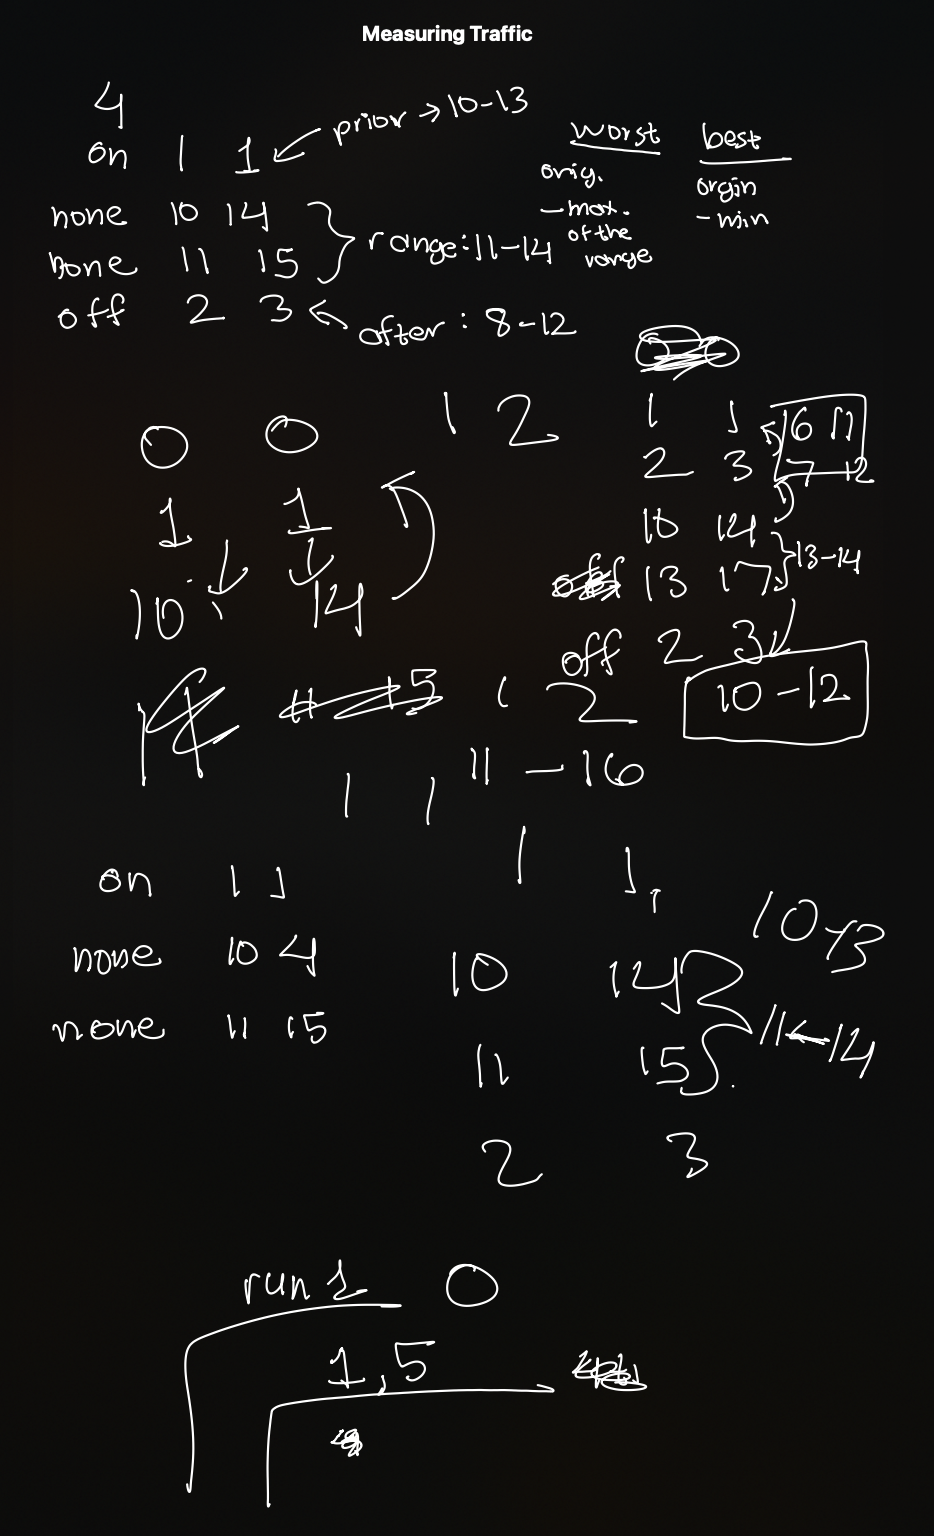 Measuring Traffic
4
on 1 1 prior → 10-13
none 10 14
none 11 15
range: 11-14
off 2 3 after: 8-12
worst
orig.
-max.
of the
range
best
orgin
-min
0 0
1 1
10 14
1 2
1 1 6 11
2 3 7 12
10 14
13 17
13-14
off 2 3
10-12
1 2
11-16
1 1
1 1
on 1 1
none 10 4
none 11 15
10 14
11 15
2 3
10-13
11-14
run 1 0
1,5